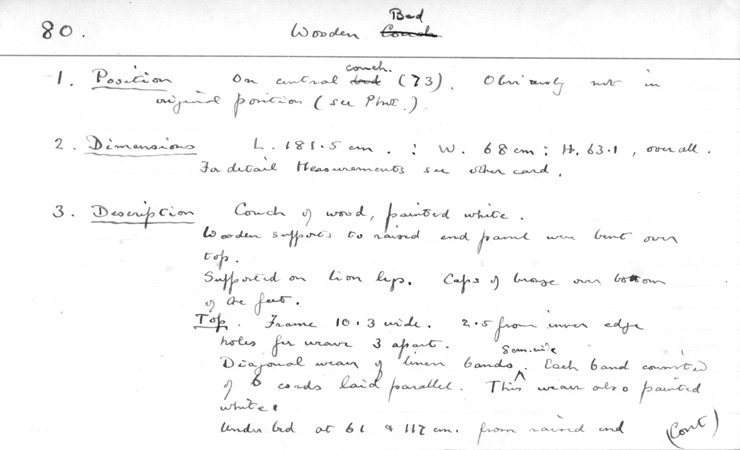 80. Wooden Bed ~~Couch~~
1. Position On central couch. ~~bed~~ (73). Obviously not in
original position (see Phot.)
2. Dimensions L. 181.5 cm. : W. 68 cm : H. 63.1, over all.
For detail Measurements see other card.
3. Description Couch of wood, painted white.
Wooden supports to raised end panel were bent over
top.
Supported on lion legs. Caps of bronze over bottom
of the feet.
Top. Frame 10.3 wide. 2.5 from inner edge
holes for weave 3 apart.
Diagonal weave of linen bands 8 cm. wide. Each band consisted
of 6 cords laid parallel. This weave also painted
white.
Under bed at 61 & 117 cm. from raised end (Cont)